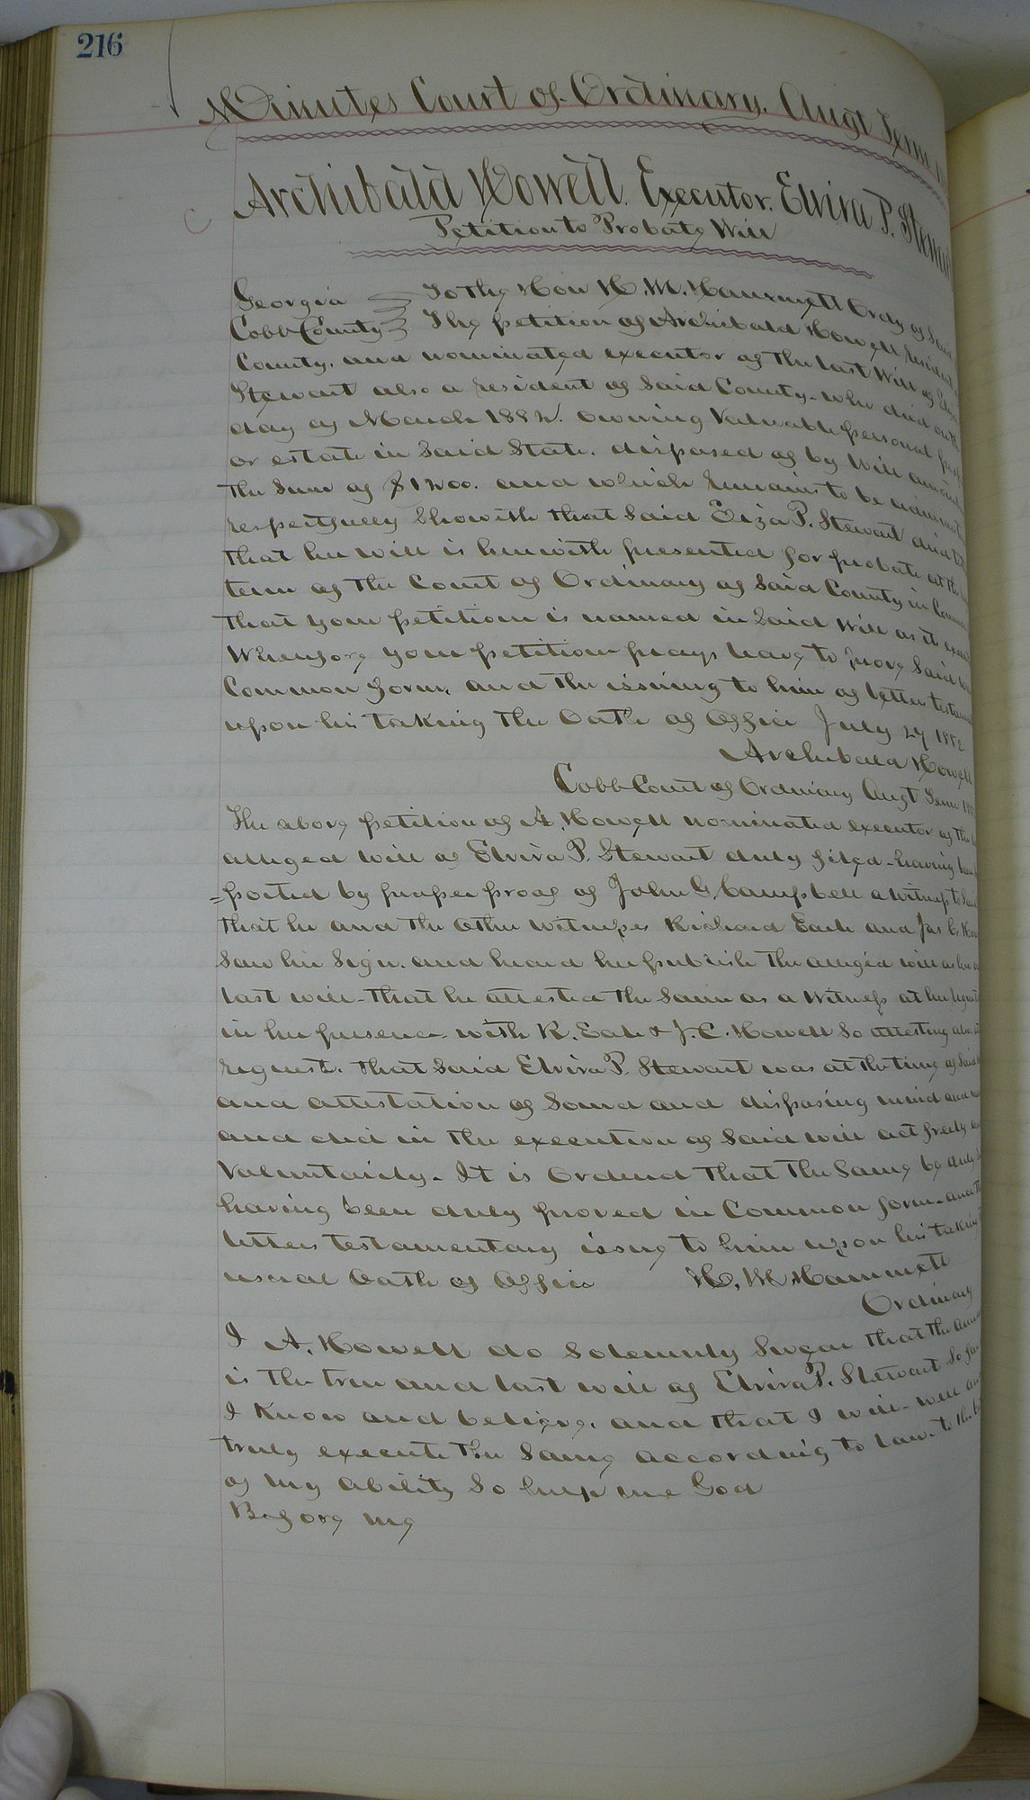 216
Minutes Court of Ordinary. Augt Term
Archibald Howell. Executor. Elvira P. Stewart
Petition to Probate Will
Georgia To the Hon H. M. Hammett Ordy of Said
Cobb County The petition of Archibald Howell resident
County. and nominated executor of the last Will of
Stewart also a resident of said County - who died on the
day of March 1882. owning Valuable personal
or estate in said State. disposed of by Will
the Sum of $1200. and which remains to be
respectfully Showith that said Eliza P. Stewart died
that her will is herewith presented for probate at the
term of the Court of Ordinary of said County in
that your petitioner is named in said Will as it
Wherefore your petitioner prays leave to prove said
Common form. and the issuing to him of letters
upon his taking the Oath of Office July 27 1882
Archibald Howell
Cobb Court of Ordinary Augt Term
The above petition of A. Howell nominated executor of the
alleged will of Elvira P. Stewart duly filed - having been
=ported by proper proof of John G. Campbell a witness to
that he and the Other witnesses Richard Eade and Jas C.
saw her sign. and heard her publish the alleged will as her
last will - that he attested the same as a witness at her
in her presence with R. Eade & J. C. Howell So attesting
request. that said Elvira P. Stewart was at the time of
and attestation of Sound and disposing mind and
and did in the execution of said will act freely
Voluntairly - It is Ordered that the same be duly
having been duly proved in Common form - and
letters testamentary issue to him upon his taking
usual Oath of Office H. M. Hammett
Ordinary
I A. Howell do Solemnly Swear that the
is the true and last will of Elvira P. Stewart So far
I Know and believe. and that I will - well
truly execute the same according to law - to the
of my ability So help me God
Before me